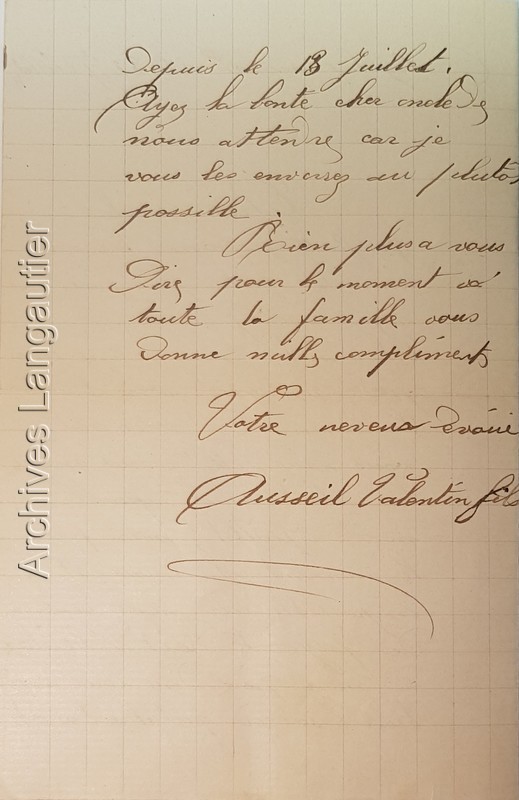 Depuis le 13 Juillet.
Ayez la bonté cher oncle De
nous attendre car je
vous les enverez au plutôt
possille.
Rien plus a vous
Dire pour le moment
toute la famille vous
Donne mille compliments
Votre neveux dévoué
Ausseil Valentin fils
Archives Langautier